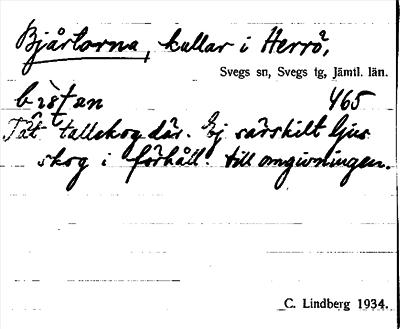 Bjårtarna, kullar i Herrö,
Svegs sn, Svegs tg, Jämtl. län.
465
Tät tallskog där. Ej särskilt ljus
skog i förhåll. till omgivningen.
C. Lindberg 1934.